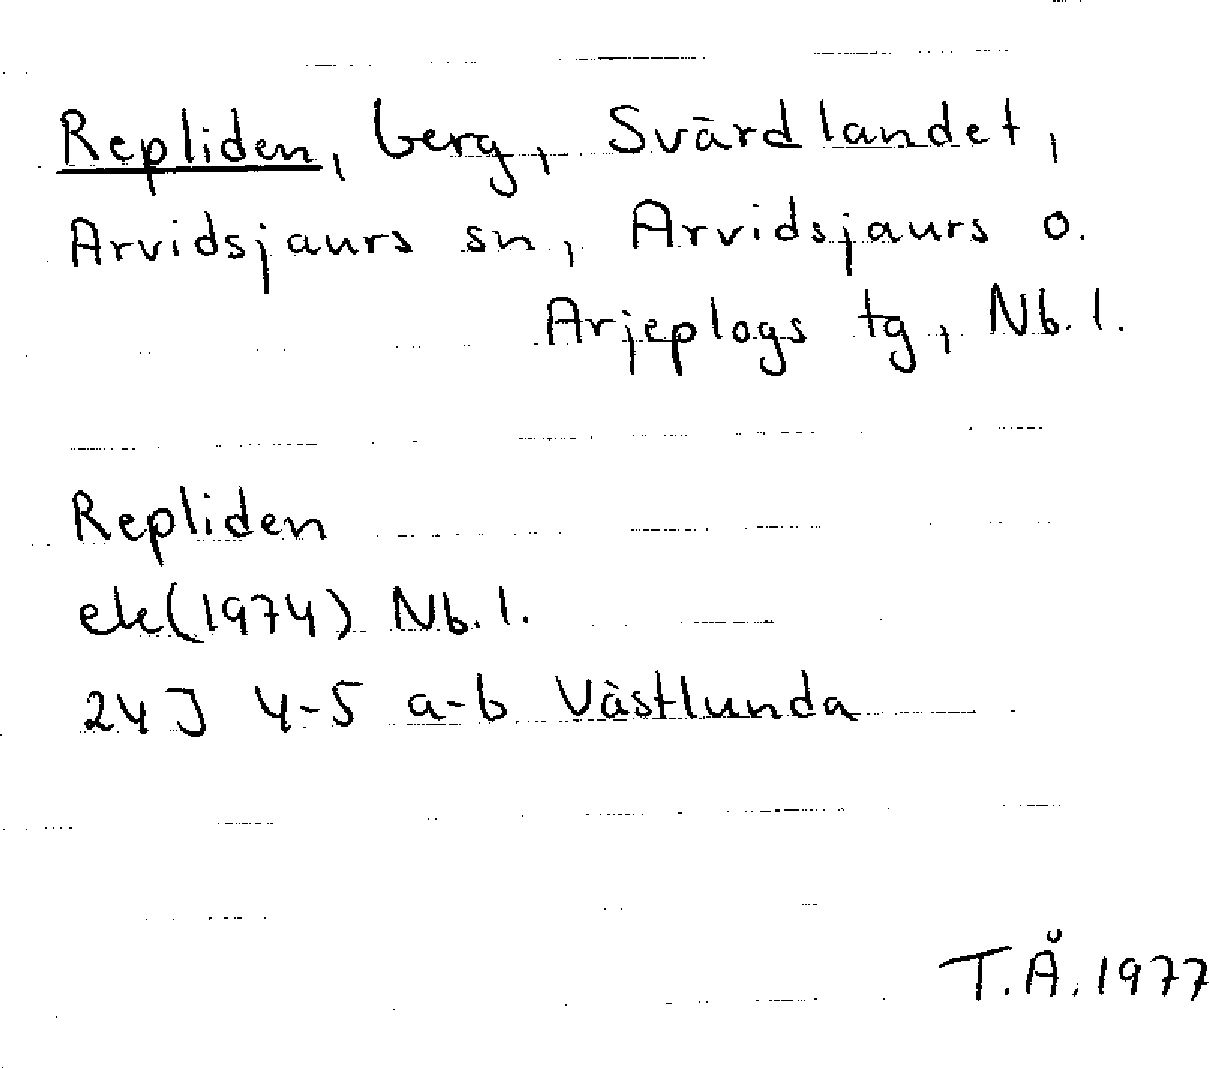 Repliden, berg, Svärdlandet,
Arvidsjaurs sn, Arvidsjaurs o.
Arjeplogs tg, Nb. l.
Repliden
ek(1974) Nb. l.
24J 4-5 a-b Västlunda
T.Å. 1977